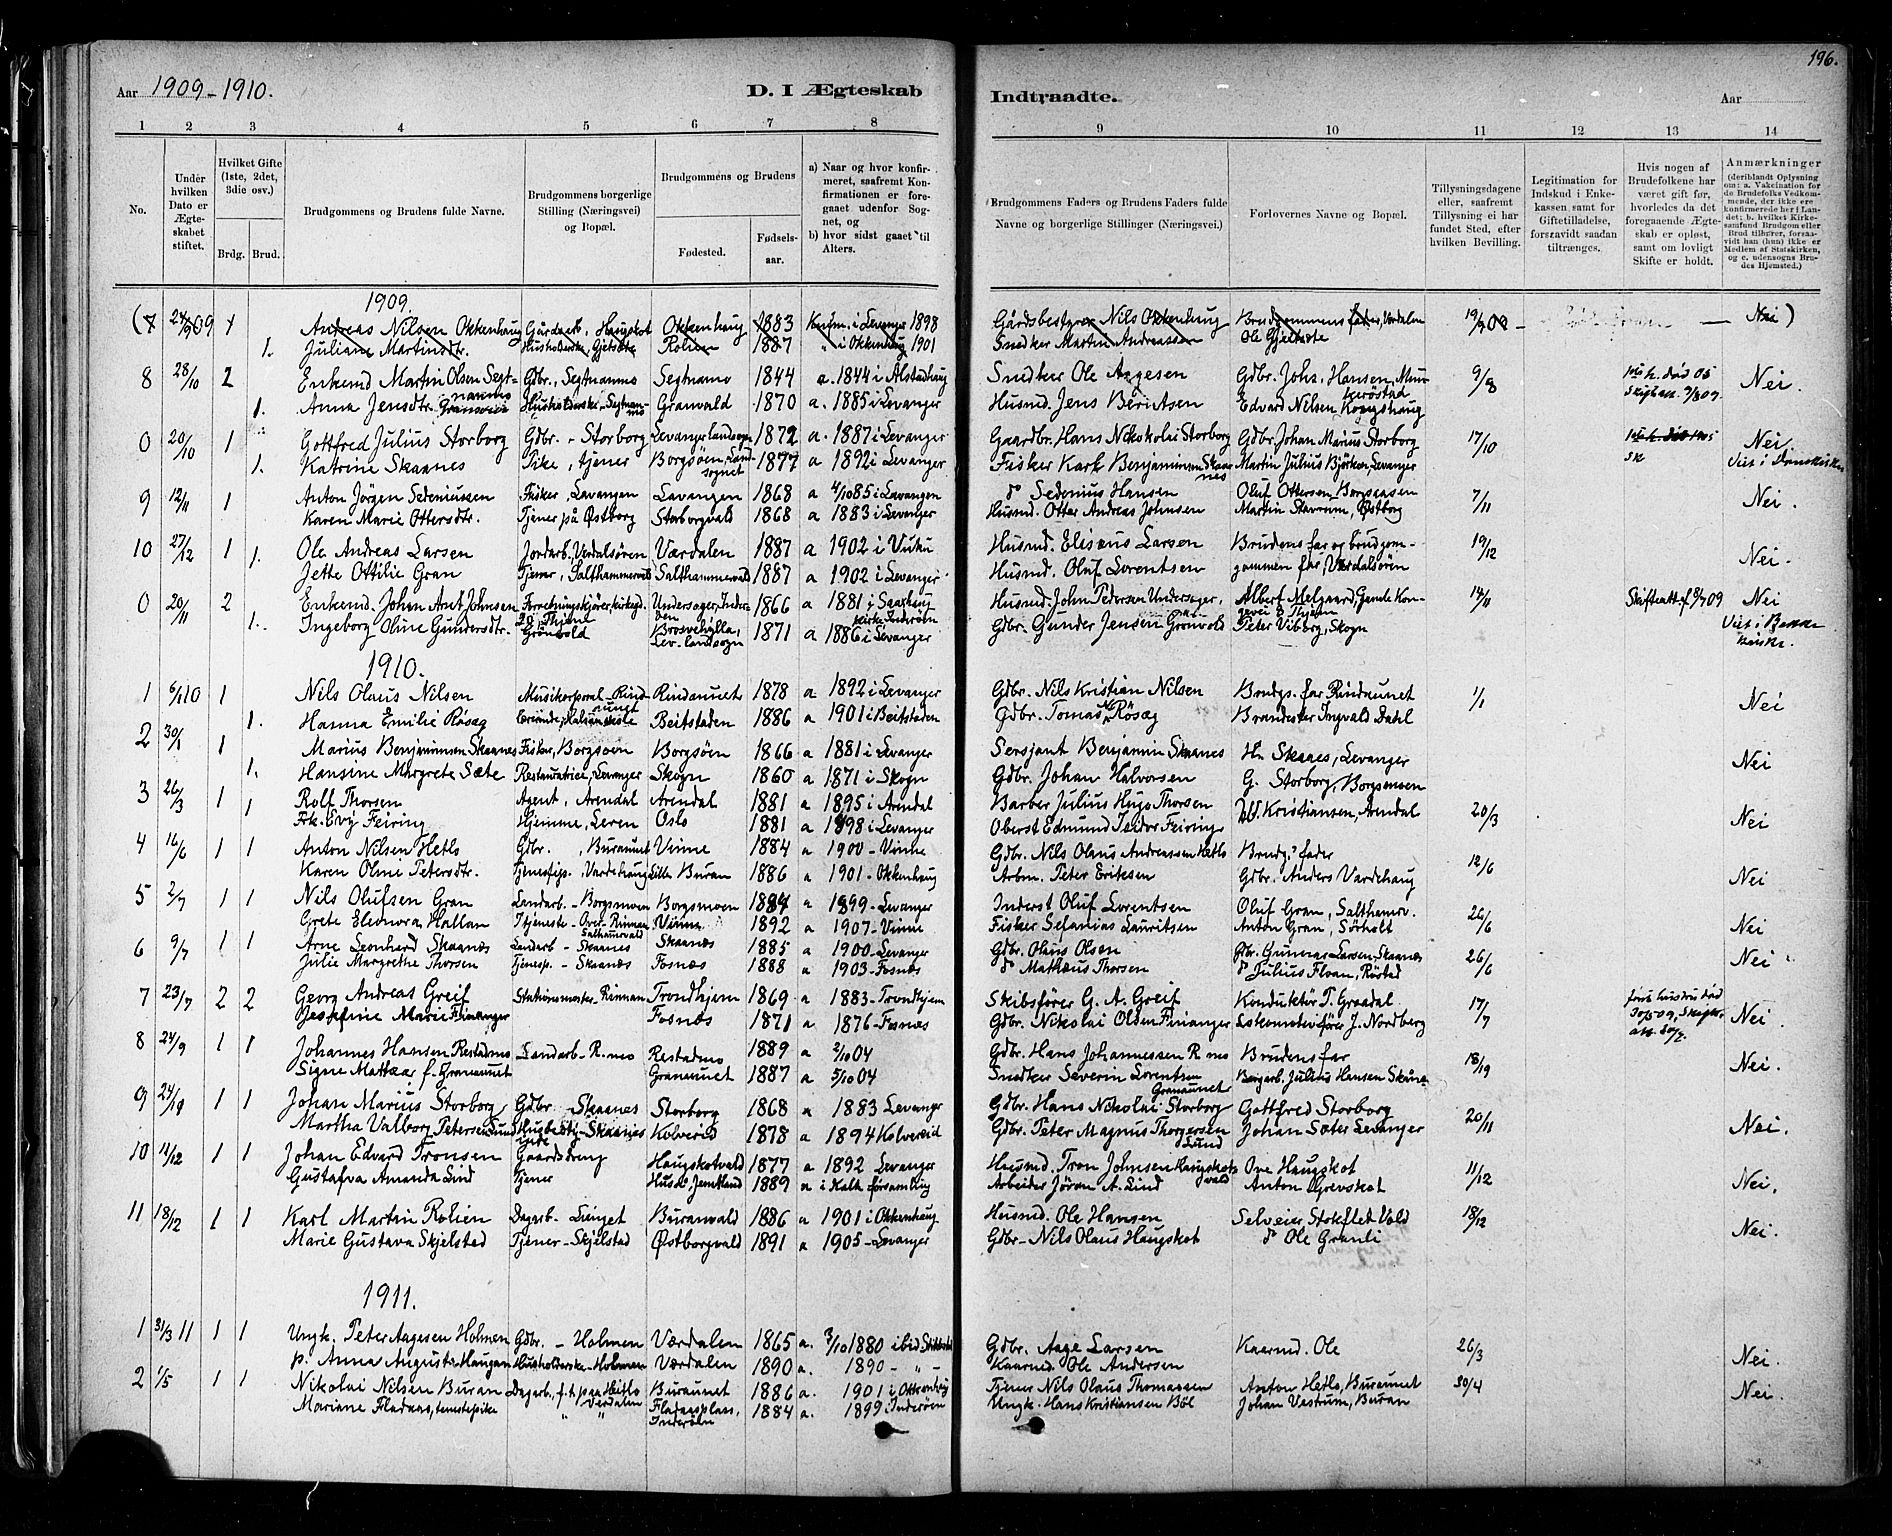 196.
Aar 1909-1910.
D. I Ægteskab Indtraadte.
Aar
1 2 3 4 5 6 7 8 9 10 11 12 13 14
No.
Under hvilken Dato er Ægteskabet stiftet.
Hvilket Gifte (1ste, 2det, 3die osv.)
Brdg. Brud.
Brudgommens og Brudens fulde Navne.
Brudgommens borgerlige Stilling (Næringsvei) og Bopæl.
Brudgommens og Brudens
Fødested. Fødselsaar.
a) Naar og hvor konfirmeret, saafremt Konfirmationen er foregaaet udenfor Sognet, og
b) hvor sidst gaaet til Alters.
Brudgommens Faders og Brudens Faders fulde Navne og borgerlige Stillinger (Næringsvei.)
Forlovernes Navne og Bopæl.
Tillysningsdagene eller, saafremt Tillysning ei har fundet Sted, efter hvilken Bevilling.
Legitimation for Indskud i Enkekassen samt for Giftetilladelse, forsaavidt saadan tiltrænges.
Hvis nogen af Brudefolkene har været gift før, hvorledes da det foregaaende Ægteskab er opløst, samt om lovligt Skifte er holdt.
Anmærkninger (deriblandt Oplysning om: a. Vakcination for de Brudefolks Vedkommende, der ikke ere konfirmerede her i Landet; b. hvilket Kirkesamfund Brudgom eller Brud tilhører, forsaavidt han (hun) ikke er Medlem af Statskirken, og c. udensogns Brudes Hjemsted.)
1909.
(7 24/9 09 1 Andreas Nilsen Okkenhaug Gårdarb., Haugskot Okkenhaug 1883 Konfm. i Levanger 1898 Gårdsbestyrer Nils Okkenhaug Brudgommens fader, Verdalen 19/9 09 Nei)
1. Juliane Martinsdtr. Husholderske, Gjetsete Rolien 1887 " i Okkenhaug 1901 Snedker Martin Andreassen Ole Gjetsete
8 28/10 2 Enkemd Martin Olsen Segtnanmo Gdbr., Segtnanmo Segtnamo 1844 a. 1844 i Alstadhaug Snedker Ole Aagesen Gdbr. Johs. Hansen, Munkerøstad 9/8 Nei.
1. Anna Jensdtr. Husholderske - Segtnanmo Granvald 1870 a. 1885 i Levanger Husmd. Jens Beritsen Edvard Nilsen Kongshaug
0 20/10 1 Gottfred Julius Storborg Gdbr. - Storborg Levanger landsogn 1872 a. 1887 i Levanger Gaardbr. Hans Nikokolai Storborg Gdbr. Johan Marius Storborg 17/10 Nei.
1. Katrine Skaanes Pike, tjener Borgsøen, Landsognet 1877 a 1892 i Levanger Fisker Karl Benjaminsen Skaanes Martin Julius Björken, Levanger
9 12/11 1 Anton Jörgen Sedeniussen Fisker, Levangen Levangen 1868 a 4/10 85 i Levangen do Sedenius Hansen Oluf Ottersen Borgsaasen 7/11 Nei.
Karen Marie Ottersdtr. Tjener på Østborg Storborgvald 1868 a 1883 i Levanger Husmd. Otter Andreas Johnsen Martin Stavrum, Østborg
10 27/12 1 1. Ole Andreas Larsen Jordarb., Verdalsören Værdalen 1887 a 1902 i Vuku Husmd. Eliseus Larsen Brudens far og brudgom- 19/12
Jette Ottilie Gran Tjener, Salthammervald Salthammervald 1887 a 1902 i Levanger Husmd. Oluf Lorentsen gommen far, Værdalsören Nei.
0 20/11 2 Enkemd. Johan Arnt Johnsen 1866 a 1881 i Saxhaug kirke Inderöen Husmd. John Pedersen Undersager, Albert Melgaard, Gamle Kongevei 3 Thjem 14/11 Skifteatt. f. 6/7 09 Nei
1. Ingeborg Oline Gundersdtr. Grönvold Lev. landsogn 1871 a 1886 i Levanger Gdbr. Gunder Jensen Gronvold Peter Viborg, Skogn Viet i Bakke kirke.
1910.
1 6/1 10 1 Nils Olaus Nilsen Musikkorporal - Rindaunet Rindaunet 1878 a 1892 i Levanger Gdbr. Nils Kristian Nilsen Brudgs. far Rindaunet 1/1 Nei
1. Hanna Emilie Rösæg Beitstaden 1886 a 1901 i Beitstaden Gdbr. Tomas N. Rösæg Brandester Ingvald Dahl
2 30/1 1 Marius Benjaminsen Skaanes Fisker, Borgsøen Borgsöen 1866 a 1881 i Levanger Sersjant Benjamin Skaanes H. Skaanes, Levanger Nei
1. Hansine Margrete Sæte Restauratrice, Levanger Skogn 1860 a 1871 i Skogn Gdbr. Johan Halvorsen G. Storborg, Borgsmoen
3 26/3 1 1 Rolf Thorsen Agent, Arendal Arendal 1881 a 1895 i Arendal Barber Julius Hugo Thorsen Kristiansen, Arendal 20/3 Nei
Frk. Evy Feiring Hjemme, Leren Oslo 1881 a 1898 i Levanger Oberst Edmund Isidor Feiring
4 16/6 1 1 Anton Nilsen Hetlo Gdbr., Buraunet Vinne 1884 a 1900 - Vinne Gdbr. Nils Olaus Andreassen Hetlo Brudg.s fader 12/6
Karen Oline Petersdtr. Tjenestpig. Vardehaug Lille Buran 1886 a 1901 - Okkenhaug Arbm. Peter Eriksen Gdbr. Anders Vardehaug Nei
5 2/7 1 1 Nils Olufsen Gran Landarb. - Borgsmoen Borgsmoen 1884 a 1899 - Levanger Inderst Oluf Lorentsen Oluf Gran, Salthamv. 26/6
Grete Eleonora Hallan Tjeneste - Over-Rinnan Salthamvald Vinne 1892 a 1907 - Vinne Fisker Selanias Lauritsen Anton Gran, Sörholt Nei
6 9/7 1 1 Arne Leonhard Skaanæs Landarb - Skaanes Skaanæs 1885 a 1900 - Levanger Gdbr. Olaus Olsen Gbr. Gunnar Larsen - Skaanæs 26/6 Nei
Julie Margrethe Thorsen Tjenesp. - Skaanæs Fosnæs 1888 a 1903 - Fosnæs do Mathæus Thorsen do Julius Floan, Röstad
7 23/7 2 2 Georg Andreas Greif Stationsmester - Rinnan Trondhjem 1869 a 1883 - Trondhjem Skibsfører G. A. Greif Konduktör T. Graadal 17/7 Nei.
Josefine Marie Finanger Fosnæs 1871 a 1876 - Fosnæs Gdbr. Nikolai Olsen Finanger Lokomotivförer J. Nordberg
8 24/9 1 1 Johannes Hansen Restadmo Landarb - R.mo Restadmo 1889 a 2/10 04 Gdbr. Hans Johannessen R.mo Brudens far 18/19 Nei.
Signe Mattea f. Granaunet Granaunet 1887 a 5/10 04 Snedker Severin Lorentsen Granaunet Bergarb. Julius Hansen Skånes
9 24/19 1 1 Johan Marius Storborg Gdbr - Skaanes Storborg 1868 a 1883 Levanger Gdbr. Hans Nikolai Storborg Gottfred Storborg 20/11
Martha Valborg Petersen Lund Husbestyrinde - Skaanes Kolvereid 1878 a 1894 Kolvereid Gdbr. Peter Magnus Thorgersen Lund Johan Sæter Levanger Nei.
10 11/12 1 1 Johan Edvard Tronsen Gaardsdreng Haugskotvald 1877 a 1892 Levanger Husmd. Tron Johnsen Haugskotvald Ove Haugskot 11/12
Gustafva Amanda Lind Tjener Husås, Jemtland 1889 a i Kalls församling Arbeider Jöran A. Lind Anton Grevskot Nei.
11 18/12 1 1 Karl Martin Rolien Dagarb. - Linget Buranvald 1886 a 1901 i Okkenhaug Husmd. Ole Hansen Selveier Stokflet Vold 18/12
Marie Gustava Skjelstad Tjener - Skjelstad Østborgvald 1891 a 1905 - Levanger Gdbr - Nils Olaus Haugskot do Ole Granli Nei.
1911.
1 31/3 11 1 1 Ungk. Peter Aagesen Holmen Gdbr. - Holmen Værdalen 1865 a. 3/10 1880 ibid. Gdbr. Aage Larsen Kaarmd. Ole 26/3
p. Anna Augusta Haugan Husholderske - Holmen Værdalen 1890 a. 1890 - " - Kaarmd. Ole Andersen Nei.
2 1/5 1 1 Nikolai Nilsen Buran Dagarb. f.t. paa Hetlo Verdalen Buraunet 1886 a. 1901 i Okkenhaug Tjener Nils Olaus Thomassen Anton Hetlo, Buraunet 30/4
Mariane Fladaas, tenestepike " " Fladaasplass, Inderöen 1884 a. 1899 i Inderöen Ungk. Hans Kristiansen Böl Johan Vestrum, Buran Nei.